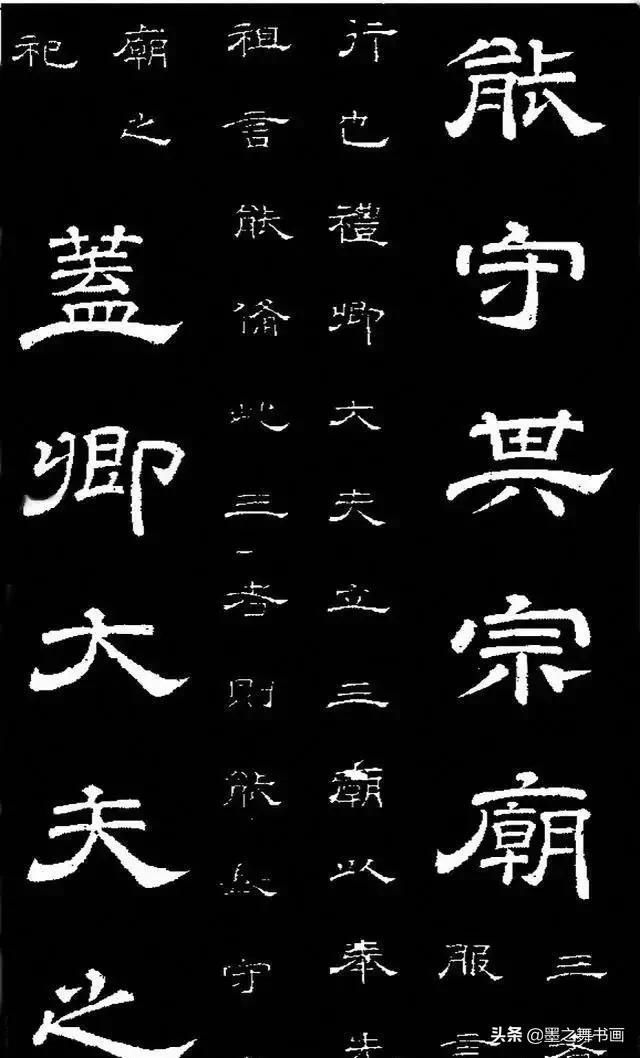 能守其宗廟
三
服言
行也禮卿大夫立三廟以奉先
祖言能備此三者則能長守
廟之
祀
蓋卿大夫之
头条 @墨之舞书画